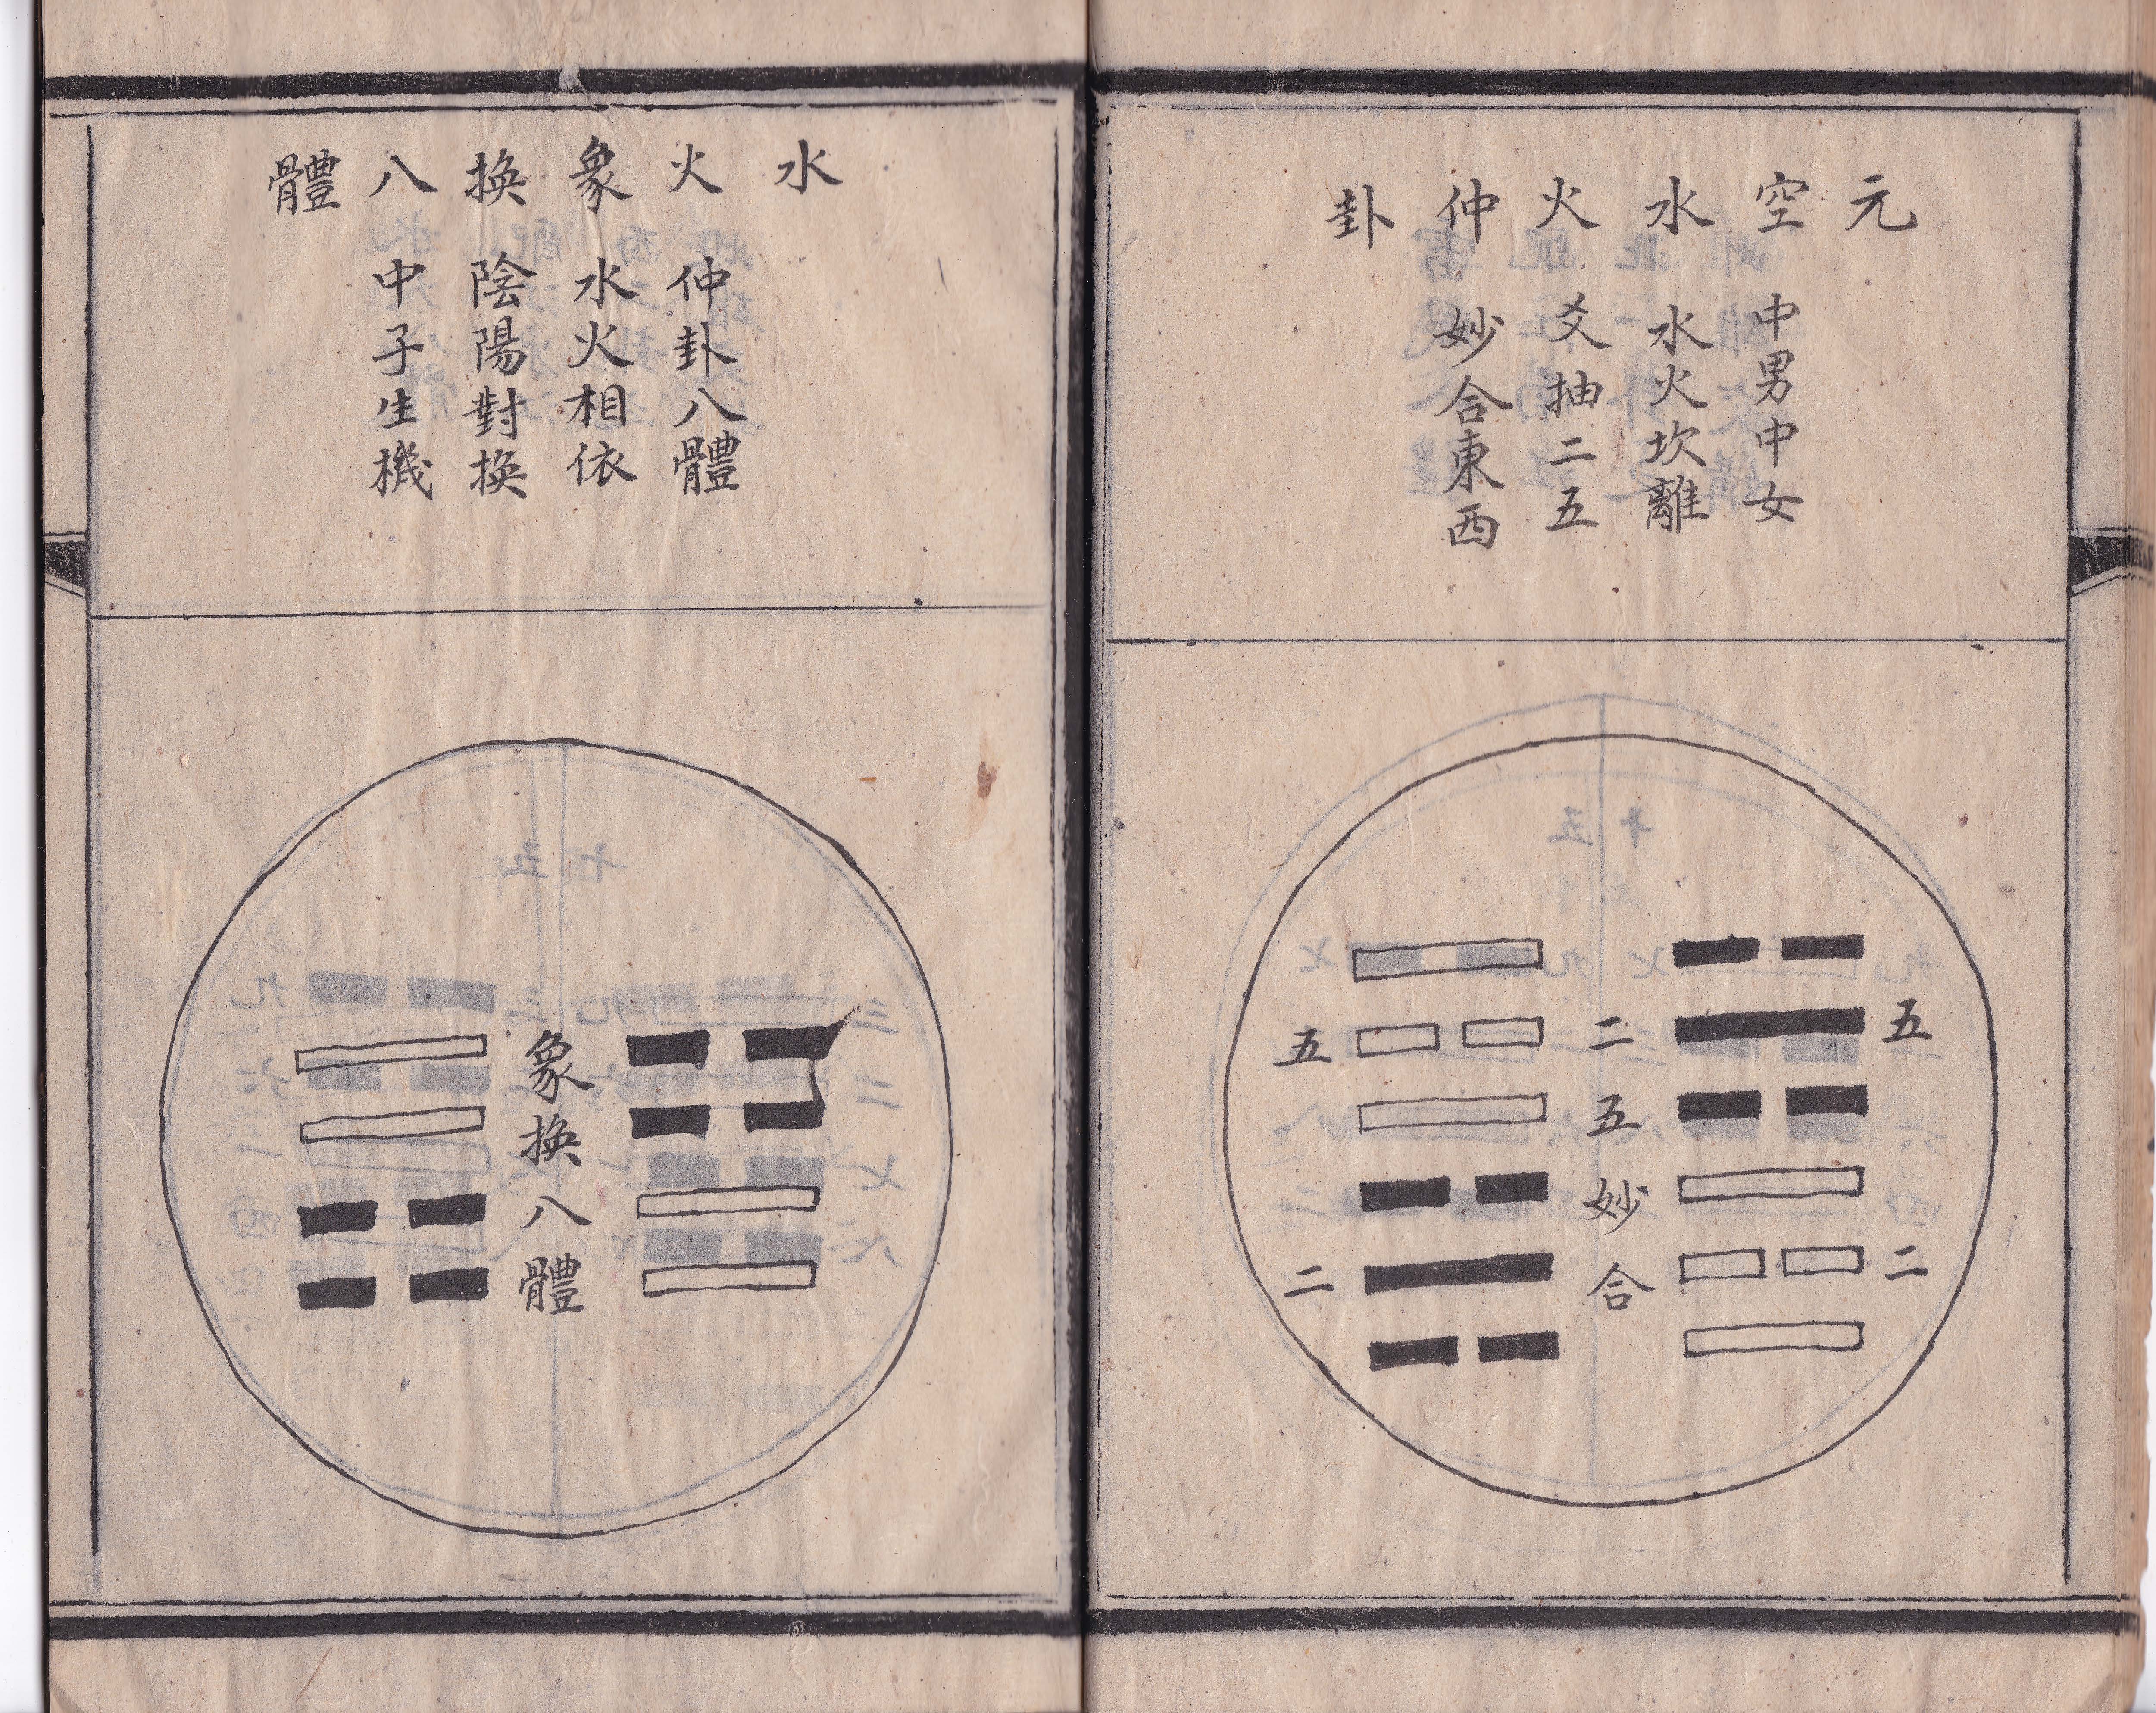 元空水火仲卦
中男中女
水火坎離
爻抽二五
妙合東西
五
二
二五妙合
五
二
水火象換八體
仲卦八體
水火相依
陰陽對換
中子生機
象換八體